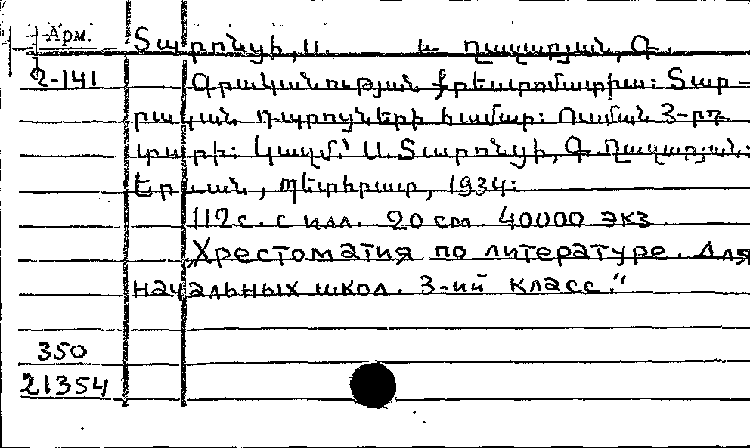 Арм.
Տարոնցի, Ս. և Ղազարյան, Գ.
2-141
Գրականության քրեստոմատիա: Տար-
րական դպրոցների համար: Ուսման 3-րդ
տարի: Կազմ.՝ Ս. Տարոնցի, Գ. Ղազարյան:
Երևան, Պետհրատ, 1934:
112 с. с илл. 20 cm 40000 экз
„Хрестоматия по литературе. Для
начальных школ. 3-ий класс."
350
21354